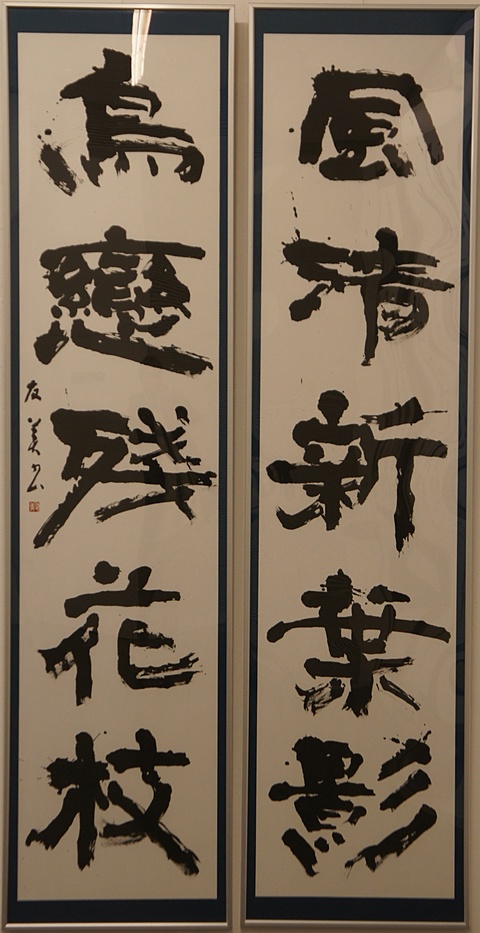 風清新葉影
鳥戀残花枝
友美書